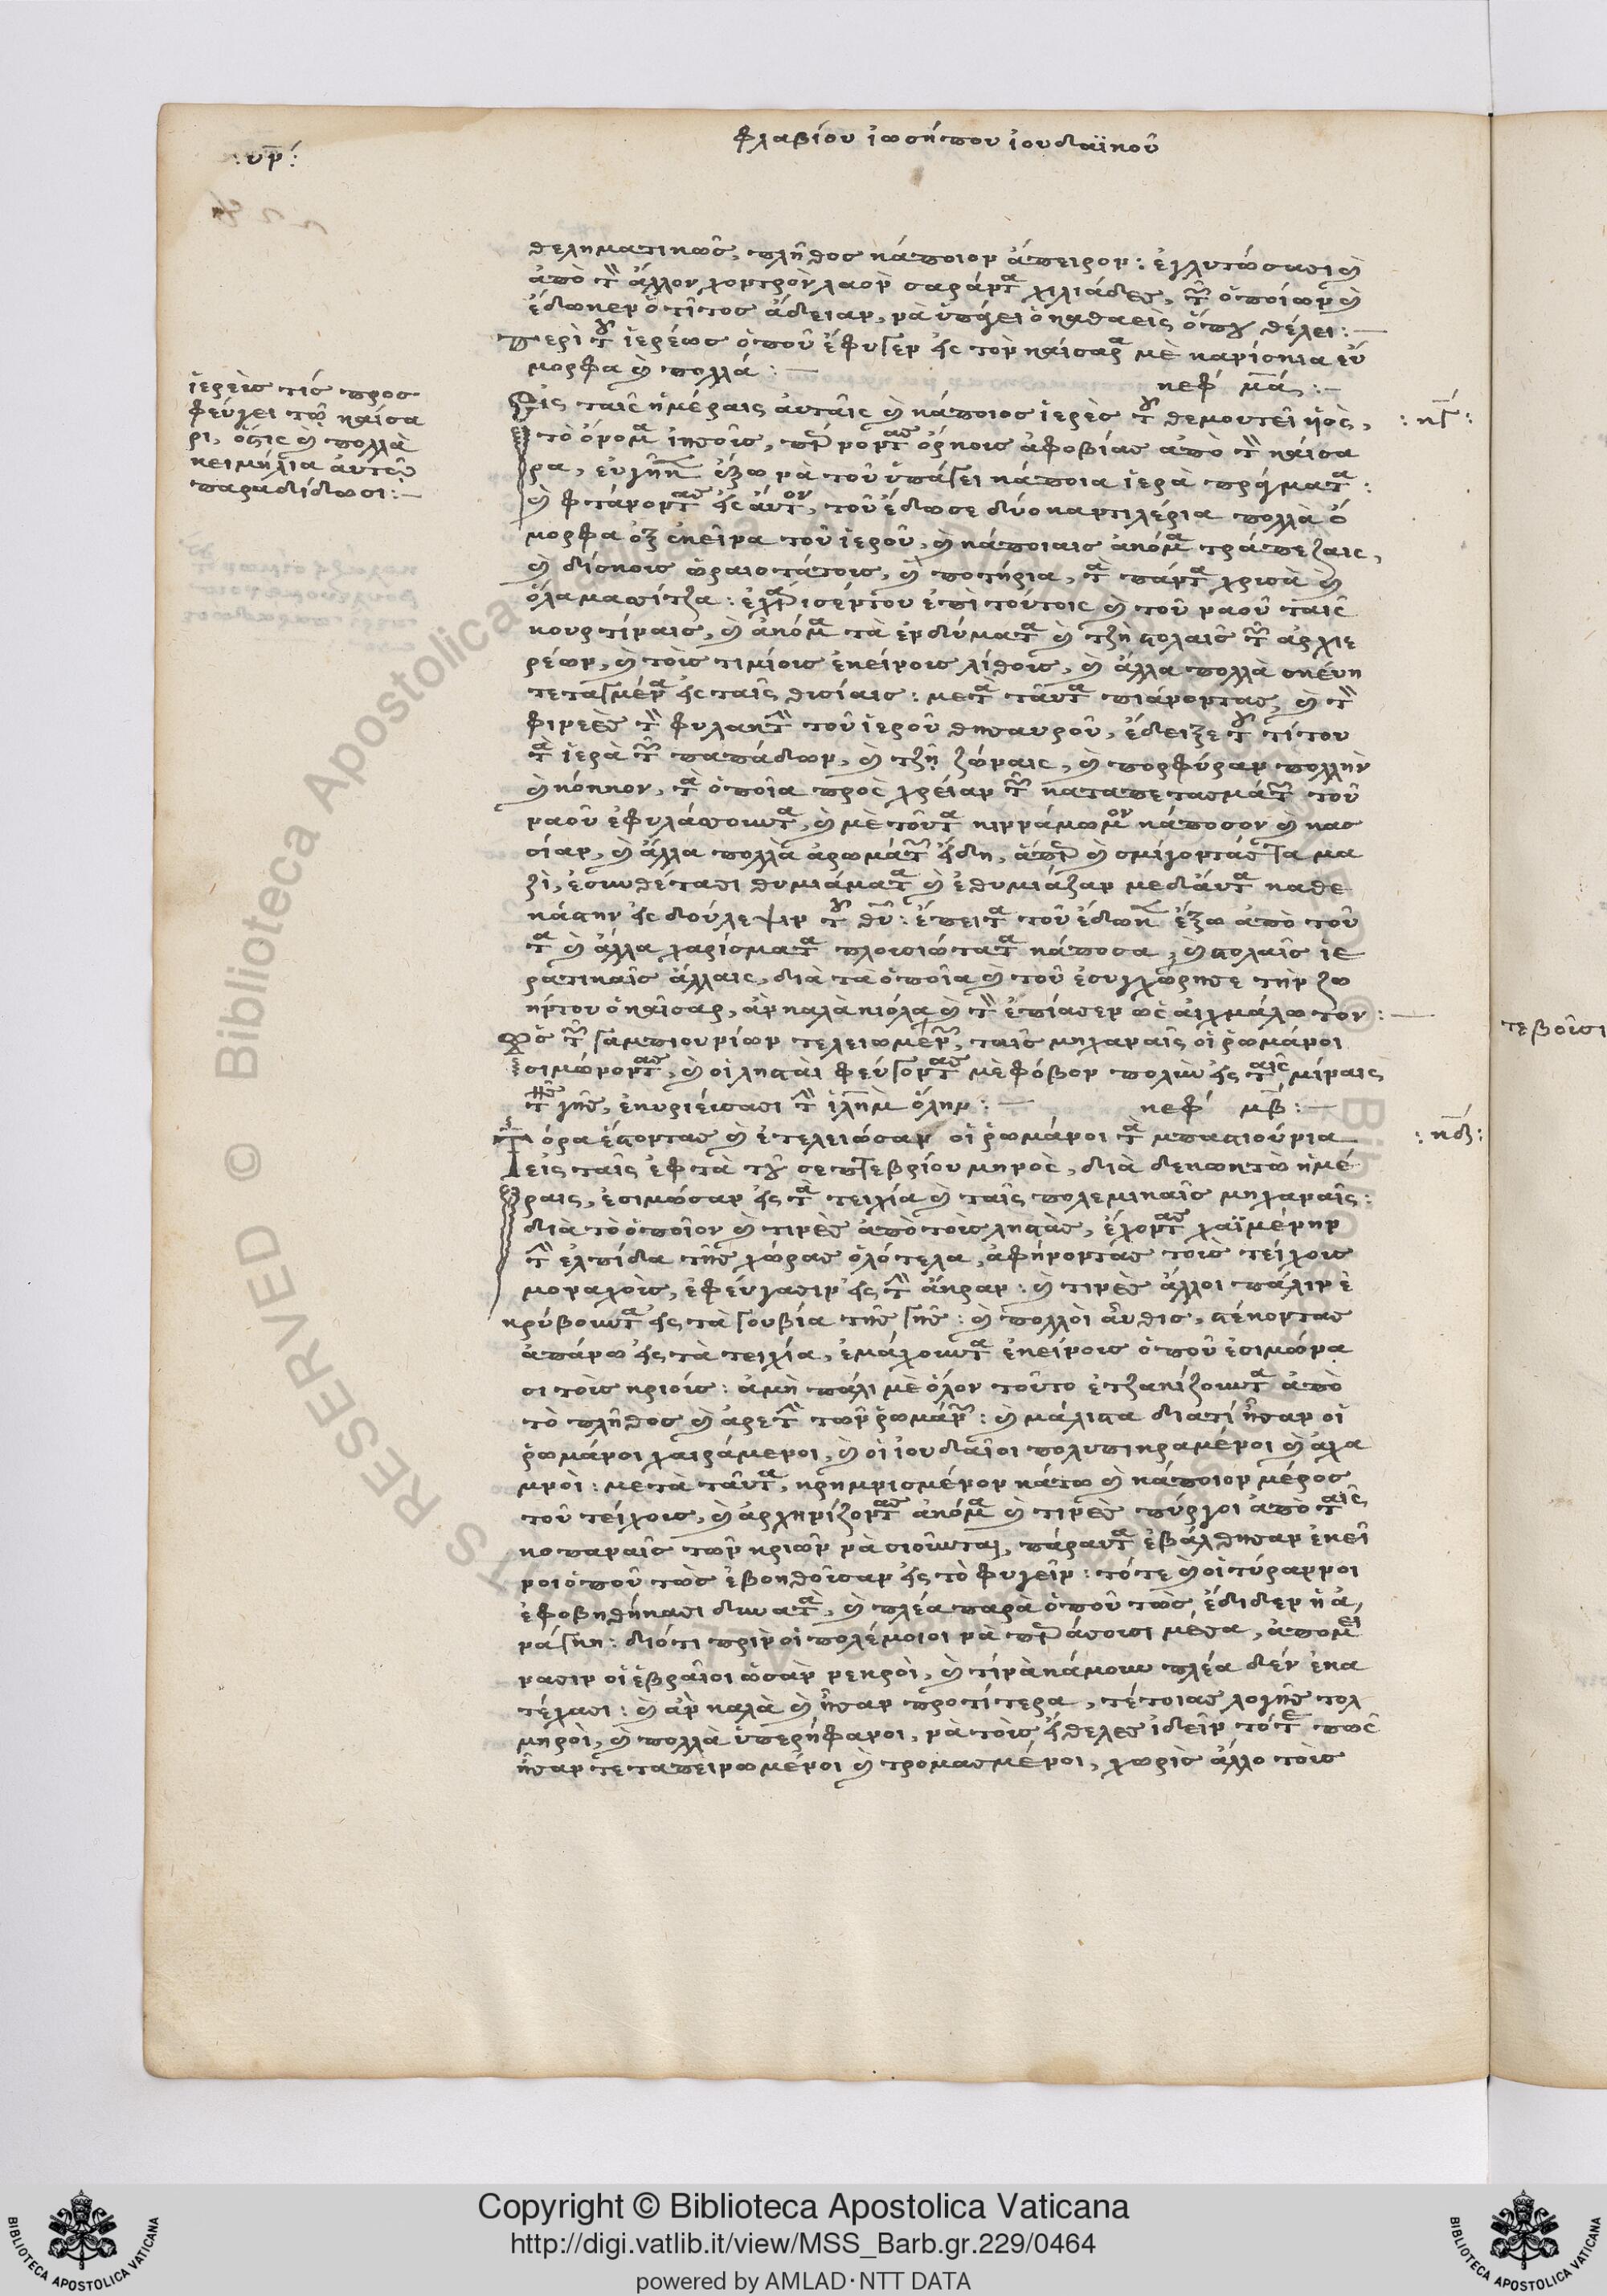 φλαβίου ἰωσήπου ἰουδαϊκοῦ
: υπ̅ :
θεληματικῶς, πλῆθος κάποιον ἄπειρον: ἐγλυτώσασι καὶ
ἀπὸ τὸν ἄλλον χοντρὸν λαὸν σαράντα χιλιάδες, τῶν ὁποίων καὶ
ἔδωκεν ὁ τῖτος ἄδειαν, νὰ ὑπάγει ὁ καθαεὶς ὅπου θέλει: —
περὶ τοῦ ἱερέως ὁποῦ ἔφυγεν εἰς τὸν καίσαρα μὲ κανίσκια εὔ
μορφα καὶ πολλά: — κεφ μα: —
ἱερεὺς τίς προς
φεύγει τῷ καίσα
ρι, ὅστις καὶ πολλὰ
κειμήλια ἀυτῷ
παραδίδωσι: —
Εἰς ταῖς ἡμέραις ἀυταῖς καὶ κάποιος ἱερὲς τοῦ θεμουτεῖ ἡὸς,
: κγ :
τὸ ὄνομα ἰησοῦς, παίρνοντας ὅρκοις ἀφοβίας ἀπὸ τὸν καίσα
ρα, εὐγῆκεν ἔξω νὰ τοῦ ὑπάγει κάποια ἱερὰ πράγματα:
καὶ φτάνοντας εἰς ἀυτὸν, τοῦ ἔδωσε δύο καντιλέρια πολλὰ ὄ
μορφα ἐξ ἐκεῖνα τοῦ ἱεροῦ, καὶ κάποιαις ἀκόμα τράπεζαις,
καὶ δίσκοις ὡραιοτάτοις, καὶ ποτήρια, τὰ πάντα χρισὰ καὶ
ὁλαμασίτζα: ἐχάρισέν του ἐπὶ τούτοις καὶ τοῦ ναοῦ ταῖς
κουρτίναις, καὶ ἀκόμα τὰ ἐνδύματα καὶ τζὴ στολαῖς τῶν ἀρχιε
ρέων, καὶ τοὺς τιμίους ἐκείνοις λίθοις, καὶ ἄλλα πολλὰ σκέυη
τεταγμένα εἰς ταῖς θισίαις: μετὰ ταῦτα πιάνοντας, καὶ τὸν
φινεὲς τὸν φύλακα τοῦ ἱεροῦ θησαυροῦ, ἔδειξε τοῦ τίτου
τὰ ἱερὰ τῶν παπάδων, καὶ τζῇ ζώναις, καὶ πορφύραν πολλὴν
καὶ κόκκον, τὰ ὁποῖα πρὸς χρείαν τῶν καταπετασμάτων τοῦ
ναοῦ ἐφυλάσουντα, καὶ μὲ τοῦτα κιννάμωμον κάποσον καὶ κασ
σίαν, καὶ ἄλλα πολλὰ ἀρωμάτων εἴδη, ἅπερ καὶ σμίγοντάς τα μα
ζὶ, ἐσυνθέτασι θυμιάματα καὶ ἐθυμιάζαν μεδἀυτα καθε
κάστην εἰς δούλεψιν τοῦ θῦ: ἔπειτα τοῦ ἔδωκεν ἔξω ἀπὸ τοῦ
τα καὶ ἄλλα χαρίσματα πλουσιώτατα κάποσα, καὶ στολαῖς ἱε
ρατικαῖς ἄλλαις, διὰ τὰ ὁποῖα καὶ τοῦ ἐσυγχώρησε τὴν ζω
ήν του ὁ καῖσαρ, ἂν καλὰ κιόλα καὶ τὸν ἐπίασεν ὡς αἰχμάλωτον: —
Πῶς τῶν γαμπιουνίων τελειωμένων, ταῖς μηχαναῖς οἱ ῥωμάνοι
ἐσιμώνοντας, καὶ οἱ λησταὶ φεύγοντας μὲ φόβον πολὺν εἰς ταῖς μίναις
τῆς γῆς, ἐκυριέυσασι τὴν ἱλημ̅ ὅλην: — κεφ μβ̅: —
Τώρα ἔστοντας καὶ ἐτελειώσαν οἱ ῥωμάνοι τὰ μπαστιούνια
: κδ :
εἰς ταῖς ἐφτὰ τοῦ σεπτεβρίου μηνὸς, διὰ δεκωκτὼ ἡμέ
ραις, ἐσιμώσαν εἰς τὰ τειχία καὶ ταῖς πολεμικαῖς μηχαναῖς:
διὰ τὸ ὁποῖον καὶ τινὲς ἀπὸ τοὺς ληστὰς, ἔχοντας χαϊμένην
τὴν ἐλπίδα τῆς χώρας ὁλότελα, ἀφήνοντας τοὺς τείχους
μοναχοὺς, ἐφέυγασιν εἰς τὴν ἄκραν: καὶ τινὲς ἄλλοι πάλιν ἐ
κρύβουντα εἰς τὰ γουβία τῆς γῆς: καὶ πολλοὶ ἄυθις, στέκοντας
ἀπάνω εἰς τὰ τειχία, ἐμάχουντα ἐκείνοις ὁποῦ ἐσιμώνα
σι τοὺς κριοὺς: ἀμὴ πάλι μὲ ὅλον τοῦτο ἐτζακίζουντα ἀπὸ
τὸ πλῆθος καὶ ἀρετὴν τῶν ῥωμάνων: καὶ μάλιστα διατί ἦσαν οἱ
ῥωμάνοι χαιράμενοι, καὶ οἱ ἰουδαῖοι πολυπικραμένοι καὶ ἀχα
μνοὶ: μετὰ ταῦτα, κρημνισμένον κάτω καὶ κάποιον μέρος
τοῦ τείχους, καὶ ἀρχηνίζοντας ἀκόμα καὶ τινὲς πύργοι ἀπὸ ταῖς
κοπαναῖς τῶν κριῶν νὰ σιοῦνται, πάραυτα ἐβάλθησαν ἐκεῖ
νοι ὁποῦ τὼς ἐβοηθοῦσαν εἰς τὸ φυγεῖν: τότε καὶ οἱ τύραννοι
ἐφοβηθήκασι δυνατὰ, καὶ πλέα παρὰ ὁποῦ τὼς ἔδιδεν ἡ ἀ
νάγκη: διότι πρὶν οἱ πολέμοιοι νὰ περάσουσι μέσα, ἀπομεί
νασιν οἱ ἑβραῖοι ὡσὰν νεκροὶ, καὶ τί νὰ κάμουν πλέα δὲν ἐκα
τέχασι: καὶ ἂν καλὰ καὶ ἦσαν προτίτερα, τέτοιας λογῆς τολ
μηροὶ, καὶ πολλὰ ὑπερήφανοι, νὰ τοὺς εἴθελες ἰδεῖν τότε πῶς
ἦσαν τεταπεινωμένοι καὶ τρομασμένοι, χωρὶς ἄλλο τοὺς
τεβοῦσι
Copyright © Biblioteca Apostolica Vaticana
http://digi.vatlib.it/view/MSS_Barb.gr.229/0464
powered by AMLAD·NTT DATA